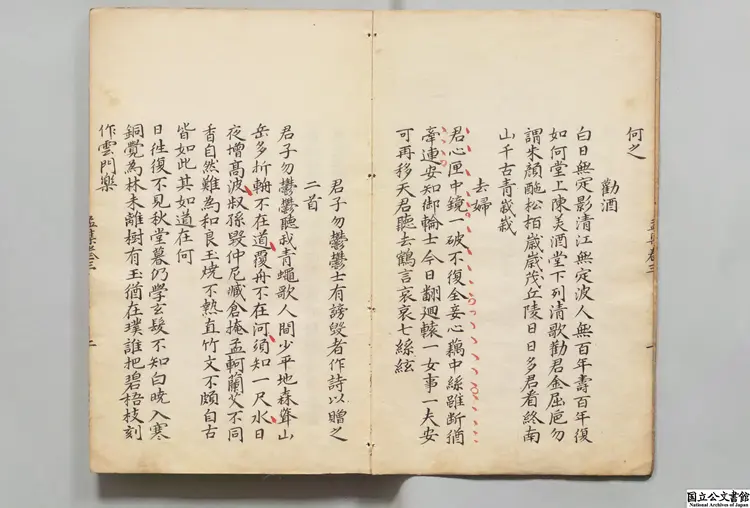 何之
勸酒
白日無定影清江無定波人無百年壽百年復
如何堂上陳美酒堂下列清歌勸君金屈卮勿
謂朱顏酡松栢歲歲茂丘陵日日多君看終南
山千古青峩峩
去婦
君心匣中鏡一破不復全妾心藕中絲雖斷猶
牽連安知御輪士今日翻迴轅一女事一夫安
可再移天君聽去鶴言哀哀七絲絃
孟集卷三
一
君子勿鬱鬱士有謗毀者作詩以贈之
二首
君子勿鬱鬱聽我青蠅歌人間少平地森聳山
岳多折輈不在道覆舟不在河須知一尺水日
夜增高波叔孫毀仲尼臧倉掩孟軻蘭艾不同
香自然難為和良玉燒不熱直竹文不頗自古
皆如此其如道在何
日往復不見秋堂暮仍學玄髮不知白曉入寒
銅覺為林未離樹有玉猶在璞誰把碧梧枝刻
作雲門樂
孟集卷三
二
国立公文書館
National Archives of Japan